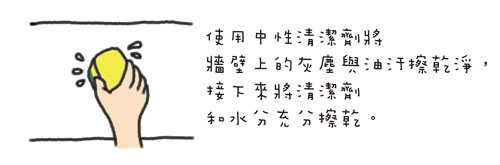 使用中性清潔劑將
牆壁上的灰塵與油汙擦乾淨，
接下來將清潔劑
和水分充分擦乾。